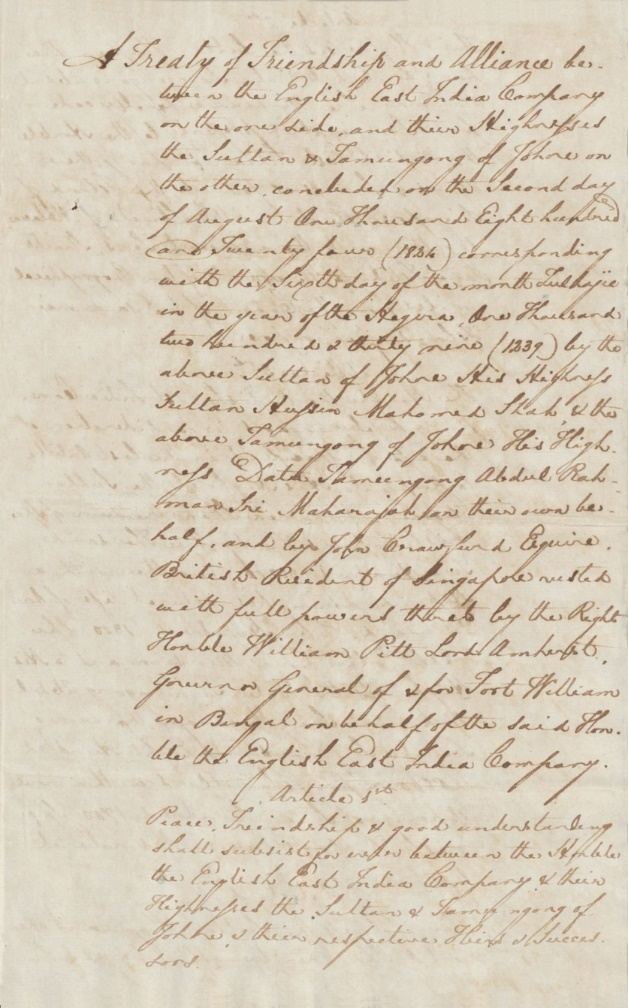 A Treaty of Friendship and Alliance be-
tween the English East India Company
on the one side, and their Highnesses
the Sultan & Tamungong of Johore on
the other, concluded on the Second day
of August One Thousand Eight hundred
and Twenty four (1824) corresponding
with the Sixth day of the month Zulhajie
in the year of the Hegira, One Thousand
two hundred & thirty nine (1239) by the
above Sultan of Johore His Highness
Sultan Hussin Mahomed Shah & the
above Tamungong of Johore His High-
ness Datu Tamungong Abdul Rah-
man Sri Maharajah on their own be-
half, and by John Crawfurd Esquire,
British Resident of Singapore vested
with full powers thereto by the Right
Honble William Pitt Lord Amherst,
Governor General of & for Fort William
in Bengal on behalf of the said Hon-
ble the English East India Company.
Article 1st
Peace, Friendship & good understanding
shall subsist for ever between the Honble
the English East India Company & their
Highnesses the Sultan & Tamungong of
Johore & their respective Heirs & Succes-
sors.